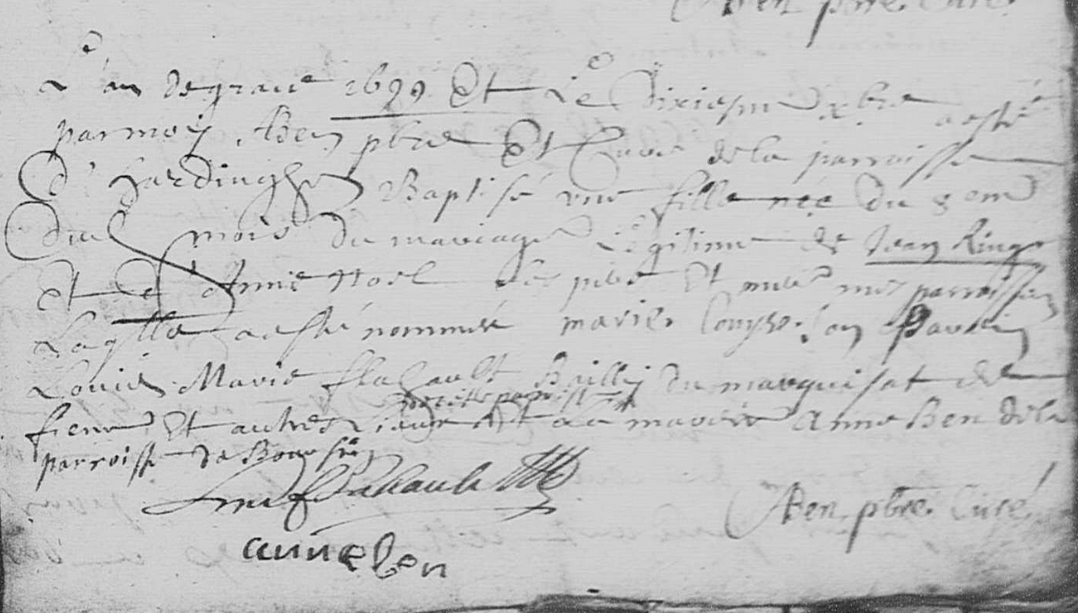 Ben pbre Curé
L'an de grace 1699 Et Le Dixiesme xbre a esté
par moy Ben pbre Et Curé de la parroisse
d'hardinghen Baptisé une fille née du 8 eme
dud mois du mariage Légitime de Jean Ringo
et d'Anne Noel ses pere Et mere mes parroissiens
Laqlle a esté nommée marie Louyse. son Parrein
Louis Marie flahault Bailly du marquisat de
de cette paroisse
fienne Et autres Lieux Et la mareine Anne Ben de la
parroisse de Boursin
Louis flahault
Ben pbre Curé
anne ben